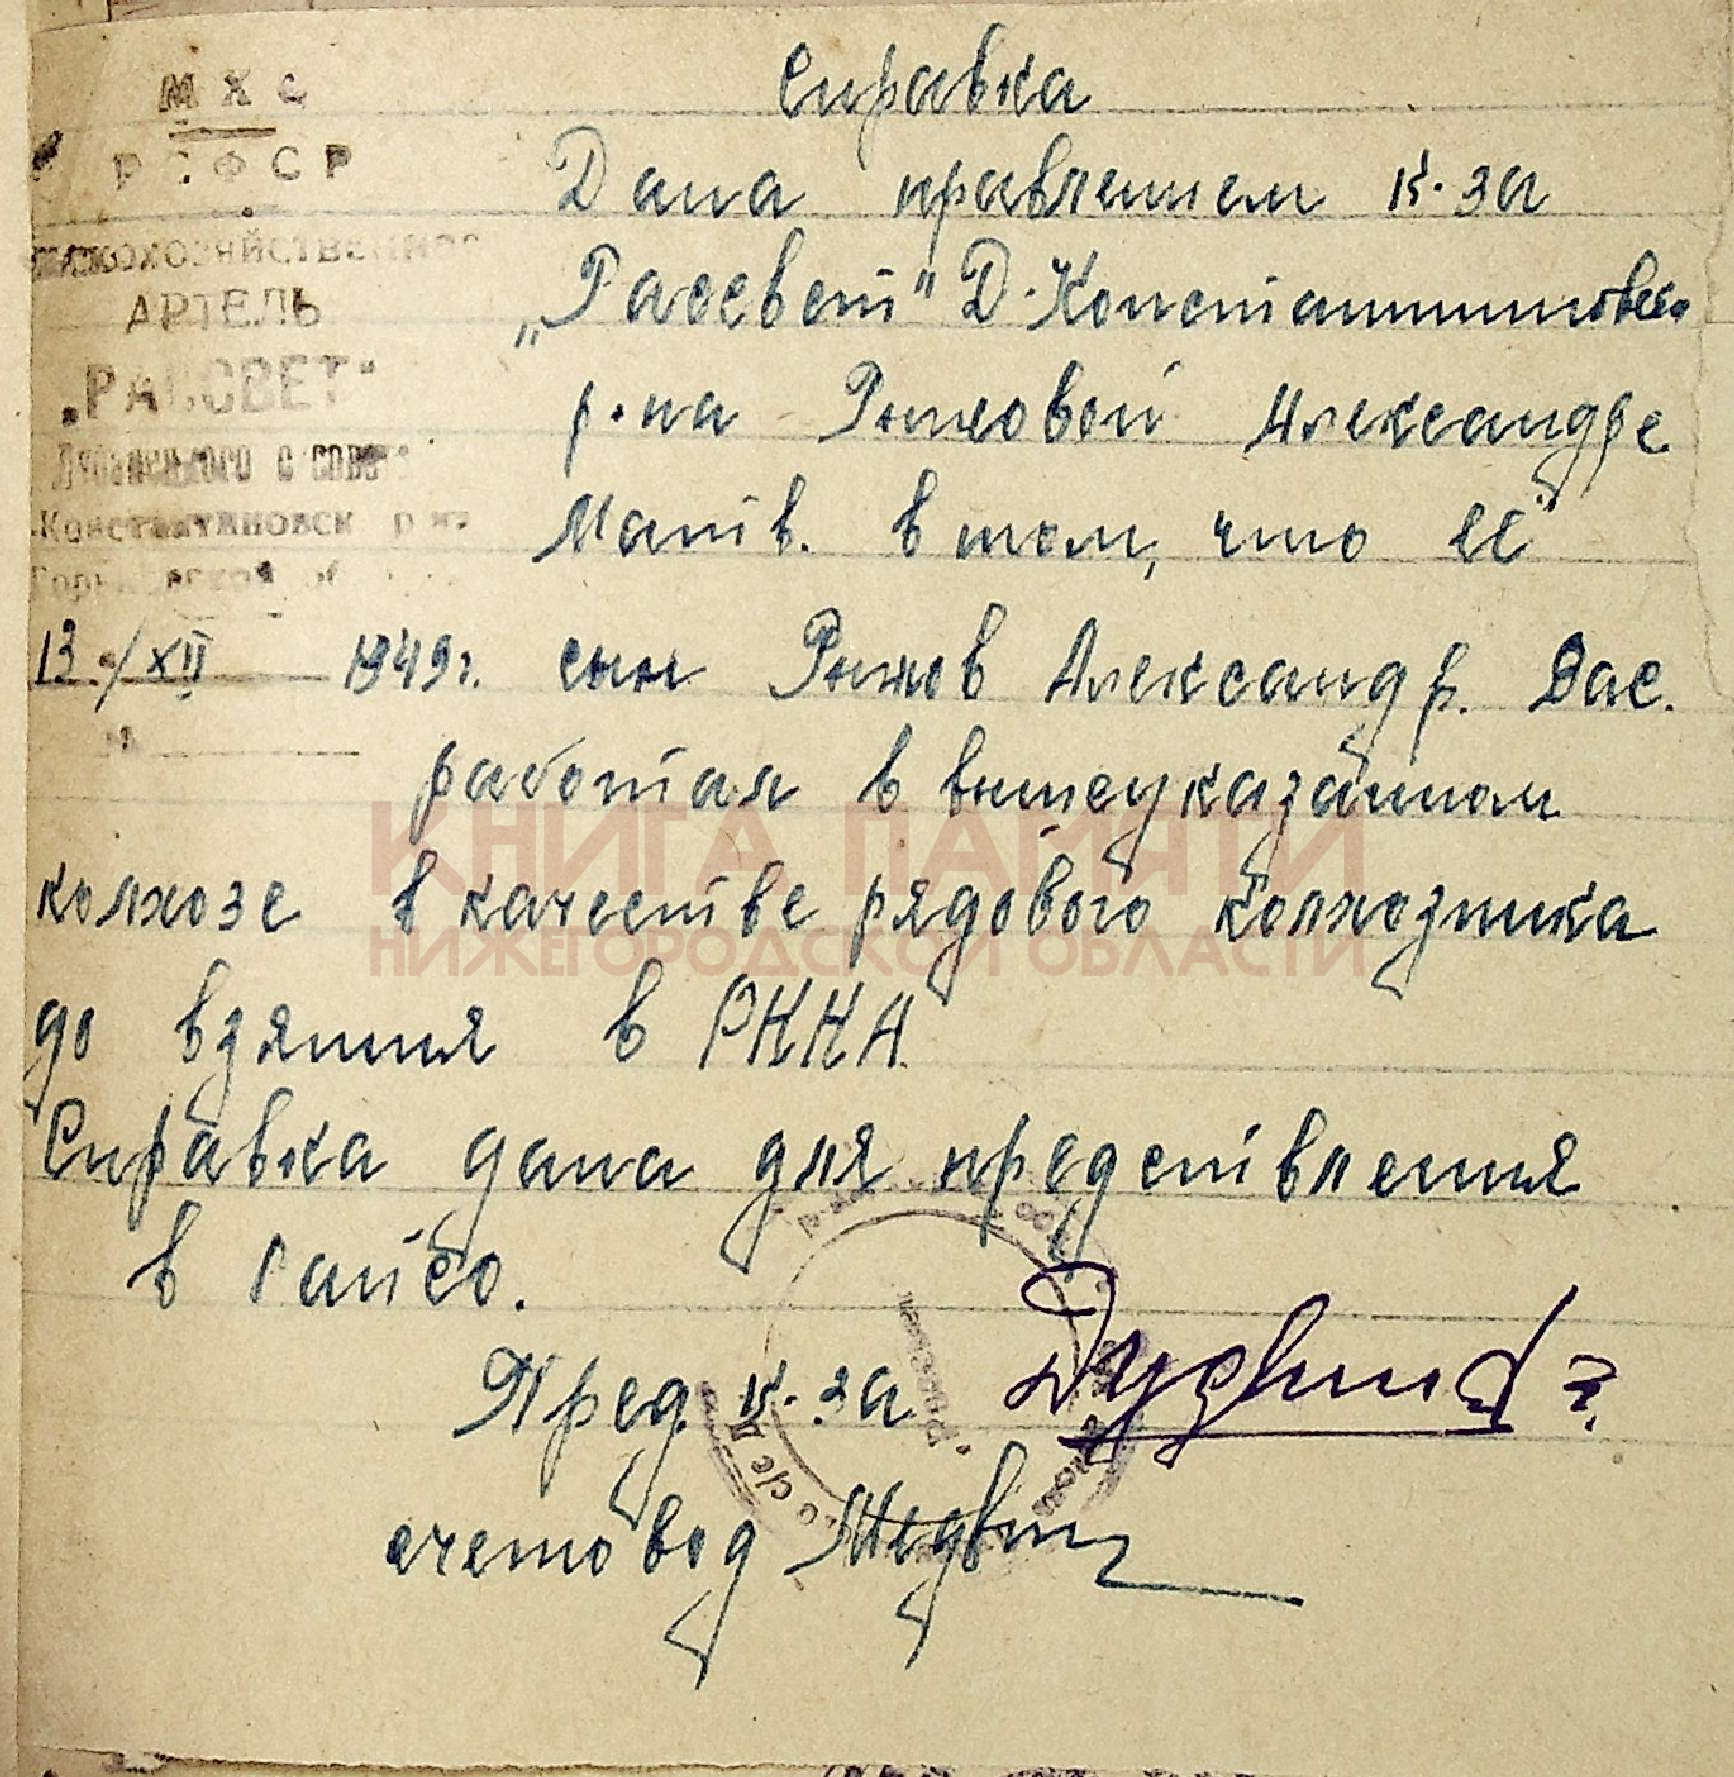 М Х С
РСФСР
АРТЕЛЬ
„РАССВЕТ"
Константиновск р-на
13/XII 1949 г.
Справка
Дана правлением к-за
„Рассвет" Д-Константиновско
р-на Рыжовой Александре
Матв. в том, что её
сын Рыжов Александр. Вас.
работал в вышеуказанном
колхозе в качестве рядового колхозника
до взятия в РККА.
Справка дана для предствления
в Гайсо.
Пред к-за
счетовод
КНИГА ПАМЯТИ
НИЖЕГОРОДСКОЙ ОБЛАСТИ